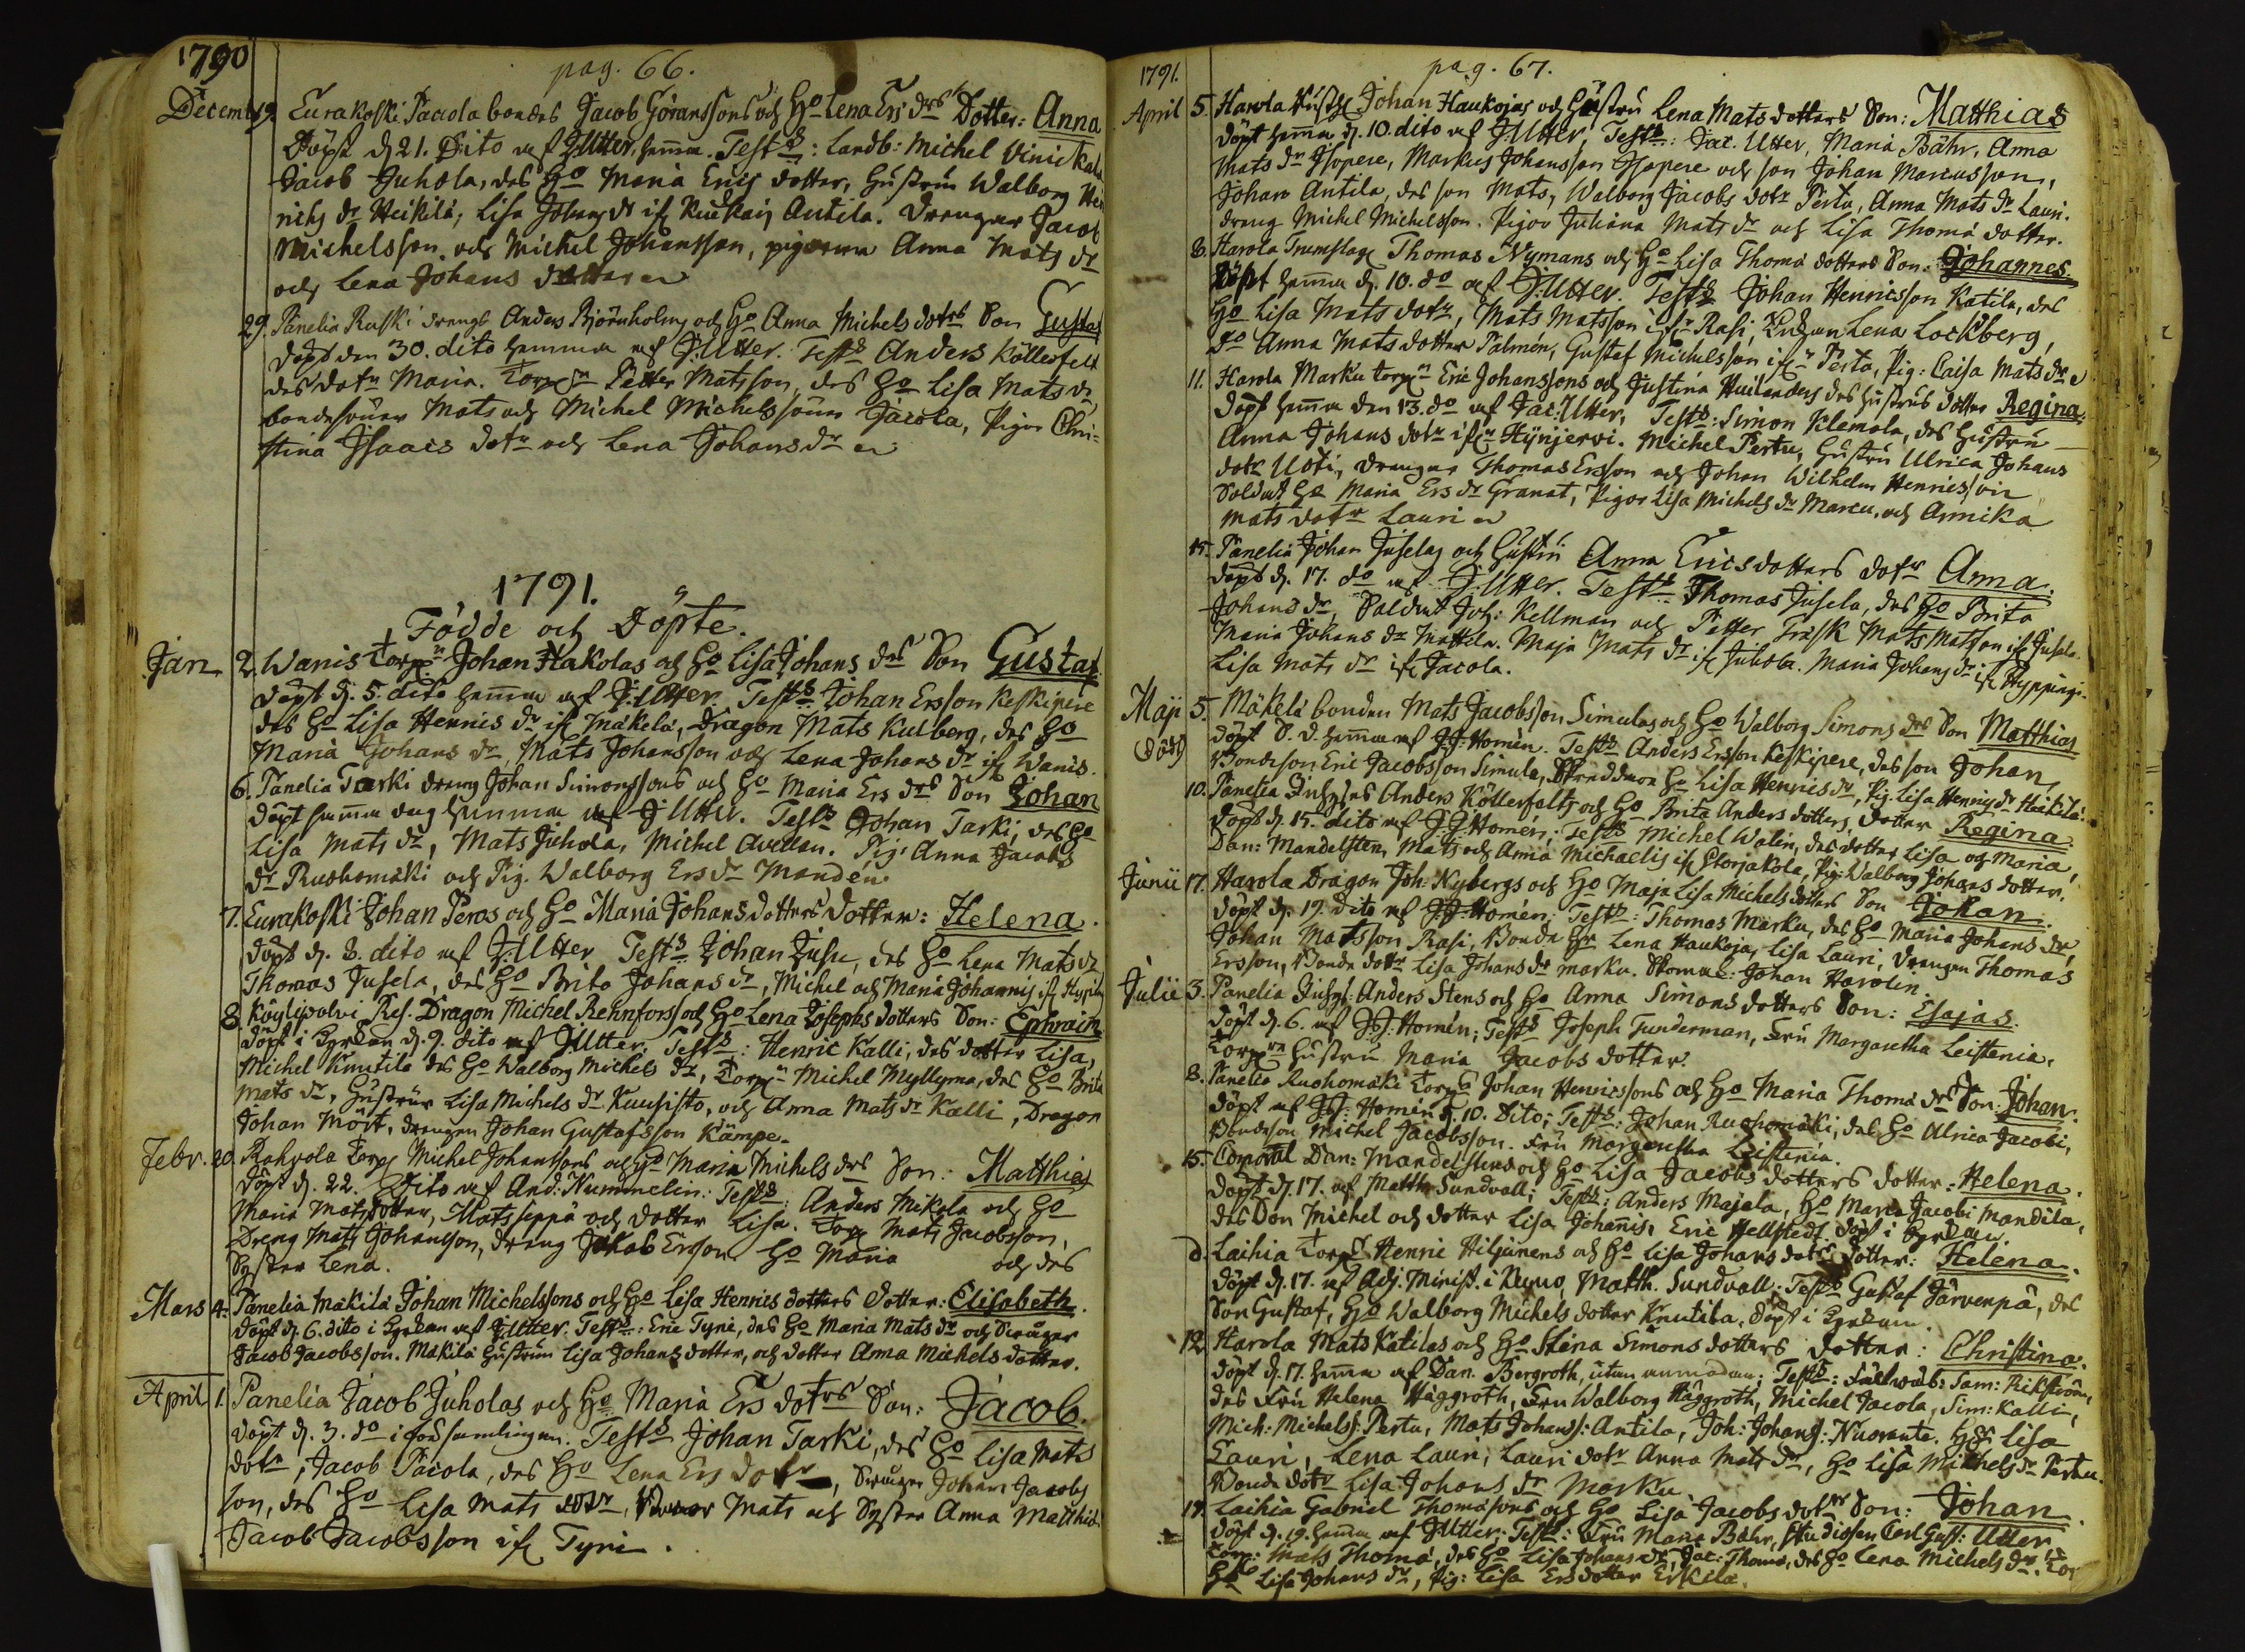 1790
pag. 66.
Decemb: 19. Eurakoski Pacola bondes Jacob Göranssons och Ho Lena Ers drs Dotter: Anna
Döpt d. 21. Dito af J:Utter hemma. Test:s: Landb: Michel Vinickala
Jacob Juhola, des Ho Maria Erics dotter, Hustrun Walborg Hen
richs dr Heikilä, Lisa Johans dr ifr Kiukais Antila. Drengar Jacob
Michelsson och Michel Johansson, pigorna Anna Mats dr
och Lena Johans dotter
29. Panelia Ruski drengs Anders Björnholms och Ho Anna Michels dotrs Son Gustaf
döpt den 30. dito hemma af J:Utter. Test:s Anders Köllerfelt
des dotr Maria. Torp:n Petter Matsson, des Ho Lisa Mats dr
bondesöner Mats och Michel Michelssöner Jacola, Pigor Chri-
stina Isaacs dotr och Lena Johans dr
1791.
Födde och Döpte.
Jan. 2. Wanis Torp:n Johan Hakolas och Ho Lisa Johans drs Son Gustaf
döpt d. 5. dito hemma af J:Utter. Test:s Johan Ersson Keskipere
des Ho Lisa Henrics dr ifr Mäkelä, Dragon Mats Kulberg, des Ho
Maria Johans dr, Mats Johansson och Lena Johans dr ifr Wanis.
6. Panelia Tarki dreng Johan Simonssons och Ho Maria Ers drs Son Johan
döpt samma dag hemma af J:Utter. Test:s Johan Tarki, des Ho
Lisa Mats dr, Mats Juhola, Michel Avellan. Pig: Anna Jacobs
dr Ruohomäki och Pig. Walborg Ers dr Mandén.
7. Eurakoski Johan Peras och Ho Maria Johans dotters Dotter: Helena.
döpt d. 8. dito af J:Utter Test:s Johan Juse, des Ho Lena Mats dr
Thomas Jusela, des Ho Brita Johans dr, Michel och Maria Johannis ifr
8. Köylipolvi Res. Dragon Michel Rehnfors och Ho Lena Josephs dotters Son: Ephraim
döpt i Kyrckan d. 9. dito af J:Utter. Test:s: Henric Kalli, des dotter Lisa,
Michel Knutila des Ho Walborg Michels dr, Torp:n Michel Myllyma, des Ho Brita
Mats dr, Hustrur Lisa Michels dr Kuusisto, och Anna Mats dr Kalli, Dragon
Johan Mört, drengen Johan Gustafsson Kämpe.
Febr. 20 Rahvola Torp: Michel Johanssons och Ho Maria Michels drs Son: Matthias
döpt d. 22. Dito af And: Nummelin: Test:s: Anders Mikola och Ho
Maria Matsdotter, Mats Seppä och dotter Lisa. Torp: Mats Jacobsson,
Dreng Mats Johansson, dreng Jakob Ersson Ho Maria och des
Syster Lena.
Mars 4. Panelia Mäkilä Johan Michelssons och Ho Lisa Henrics dotters dotter: Elisabeth.
döpt d. 6. dito i Kyrckan af J:Utter. Test:s: Eric Tyni, des Ho Maria Mats dr och Swåger
Jacob Jacobsson. Mäkilä Hustrun Lisa Johans dotter, och dotter Anna Michels dotter.
April 1. Panelia Jacob Juholas och Ho Maria Ers dotrs Son: Jacob.
döpt d. 3. do i församlingen. Test:s Johan Tarki, des Ho Lisa Mats
dotr, Jacob Pacola, des Ho Lena Ers dotr, Swåger Johan Jacobs
son, des Ho Lisa Mats dotr, Mats och Syster Anna Matthid
Jacob Jacobsson ifr Tyni.
1791.
pag. 67.
April 5. Harola Johan Haukojas och Hustru Lena Mats dotters Son: Matthias
döpt hemma d. 10. dito af J:Utter, Test:s: Jac. Utter, Maria Bähr, Anna
Mats dr Isopere, Markus Johansson Isopere och son Johan Marcusson,
Johan Antila, des son Mats, Walborg Jacobs dotr Pertu, Anna Mats dr Lauri.
dreng Michel Michelsson. Pigor Juliana Mats dr och Lisa Thomä dotter.
8. Harola Trumslag: Thomas Nymans och Ho Lisa Thomä dotters Son: Johannes
Döpt hemma d. 10. do af J:Utter. Test:s Johan Henricsson Katila, des
Ho Lisa Mats dotr, Mats Matsson ifr Rasi, Lena Lockberg,
Ho Anna Mats dotter Palmén, Gustaf Michelsson ifr Pertu, Pig: Caisa Mats dr
11. Harola Marku torp:n Eric Johanssons och Justina Huilanders des hustrus dotter Regina.
döpt hemma den 13. do af Jac:Utter, Test:s: Simon Klemola, des Hustru
Anna Johans dotr ifr Hynjervi. Michel Pertu, Hustru Ulrica Johans
dotr Uoti, drengar Thomas Ersson och Johan Wilhelm Henricsson
Soldat Ho Maria Ers dr Granat, Pigor Lisa Michels dr Marcu, och Annika
Mats dotr Lauri
15. Panelia Johan Juselas och Hustru Anna Ericsdotters dotr Anna.
döpt d. 17. do af J:Utter. Test:s: Thomas Jusela, des Ho Brita
Johans dr, Soldat Joh: Kellman och Petter Träsk Mats Matsson ifr Jusela.
Maria Johans dr Mattila. Maja Mats dr ifr Juhola. Maria Johans dr ifr Hyppingi.
Lisa Mats dr ifr Jacola.
Maji 5. Mäkelä bonden Mats Jacobsson Simulas och Ho Walborg Simons drs Son Matthias
(död) döpt S. D. hemma af J.J:Homén. Test:s Anders Ersson Keskipere, des son Johan,
Bondeson Eric Jacobsson Simula, Skreddare Ho Lisa Henrics dr, Pig. Lisa Henrics dr Heikilä.
10. Panelia Anders Köllerfelts och Ho Brita Anders dotters dotter Regina
döpt d. 15. dito af J.J:Homén; Test:s Michel Walin, des dotter Lisa och Maria,
Dan: Mandelsten, Mats och Anna Michaelis ifr Storjakola, Pig: Walborg Johans dotter.
Junii 17. Harola Dragon Joh: Nybergs och Ho Maja Lisa Michels dotters Son Johan.
döpt d. 19. dito af J.J:Homén; Test:s: Thomas Marku, des Ho Maria Johans dr,
Johan Matsson Rasi, Bonde Ho Lena Haukoja, Lisa Lauri, drengen Thomas
Ersson, Bonde dotr Lisa Johans dr Marku. Skomak: Johan Harolin.
Julii 3. Panelia Anders Stens och Ho Anna Simons dotters Son: Esajas.
döpt d. 6. af J.J:Homén; Test:s Joseph Tunderman, Fru Margaretha Leistenia.
Torp:rn Hustru Maria Jacobs dotter.
8. Panelia Ruohomäki Torp:s Johan Henricssons och Ho Maria Thomä drs Son: Johan.
döpt af J.J:Homén d. 10. dito; Test:s: Johan Ruohomäki, des Ho Ulrica Jacobi,
Bondeson Michel Jacobsson. Fru Margaretha Leistenia.
15. Corporal Dan: Mandelstens och Ho Lisa Jacobs dotters dotter: Helena.
döpt d. 17. af Matth: Sundvall; Test:s: Anders Majala, Ho Maria Jacobi Mandila,
des Son Michel och dotter Lisa Johanis, Eric Hellstedt. döpt i Kyrckan.
d. Laihia Torp:s Henric Hiljanens och Ho Lisa Johans dotrs Dotter: Helena.
döpt d. 17. af Adj. Minist. i Kiumo, Matth. Sundvall; Test:s Gustaf Järvenpä, des
Son Gustaf, Ho Walborg Michels dotter Knutila, döpt i Kyrckan.
12. Harola Mats Katilas och Ho Stina Simons dotters Dotter: Christina.
döpt d. 17. hemma af Dan. Bergroth, utan anmodan; Test:s: Sam: Rikström,
des Fru Helena Häggroth, Fru Walborg Häggroth, Michel Jacola, Sim: Kalli,
Mich: Michels: Pertu, Mats Johans: Antila, Joh: Johans: Nuoranta. Ho Lisa
Lauri, Lena Lauri, Lauri dotr Anna Mats dr, Ho Lisa Michels dr Pertu.
Bonde dotr Lisa Johans dr Marku.
19. Laihia Gabriel Thomäsons och Ho Lisa Jacobs dotrs Son: Johan.
döpt d. 19. hemma af J:Utter: Test:s: Fru Maria Bähr, Studiosen Carl Gust: Utter
Mats Thomä, des Ho Lisa Johans dr, Jac: Thomä, des Ho Lena Michels dr. Tor
Ho Lisa Johans dr, Pig: Lisa Ers dotter Erkilä.